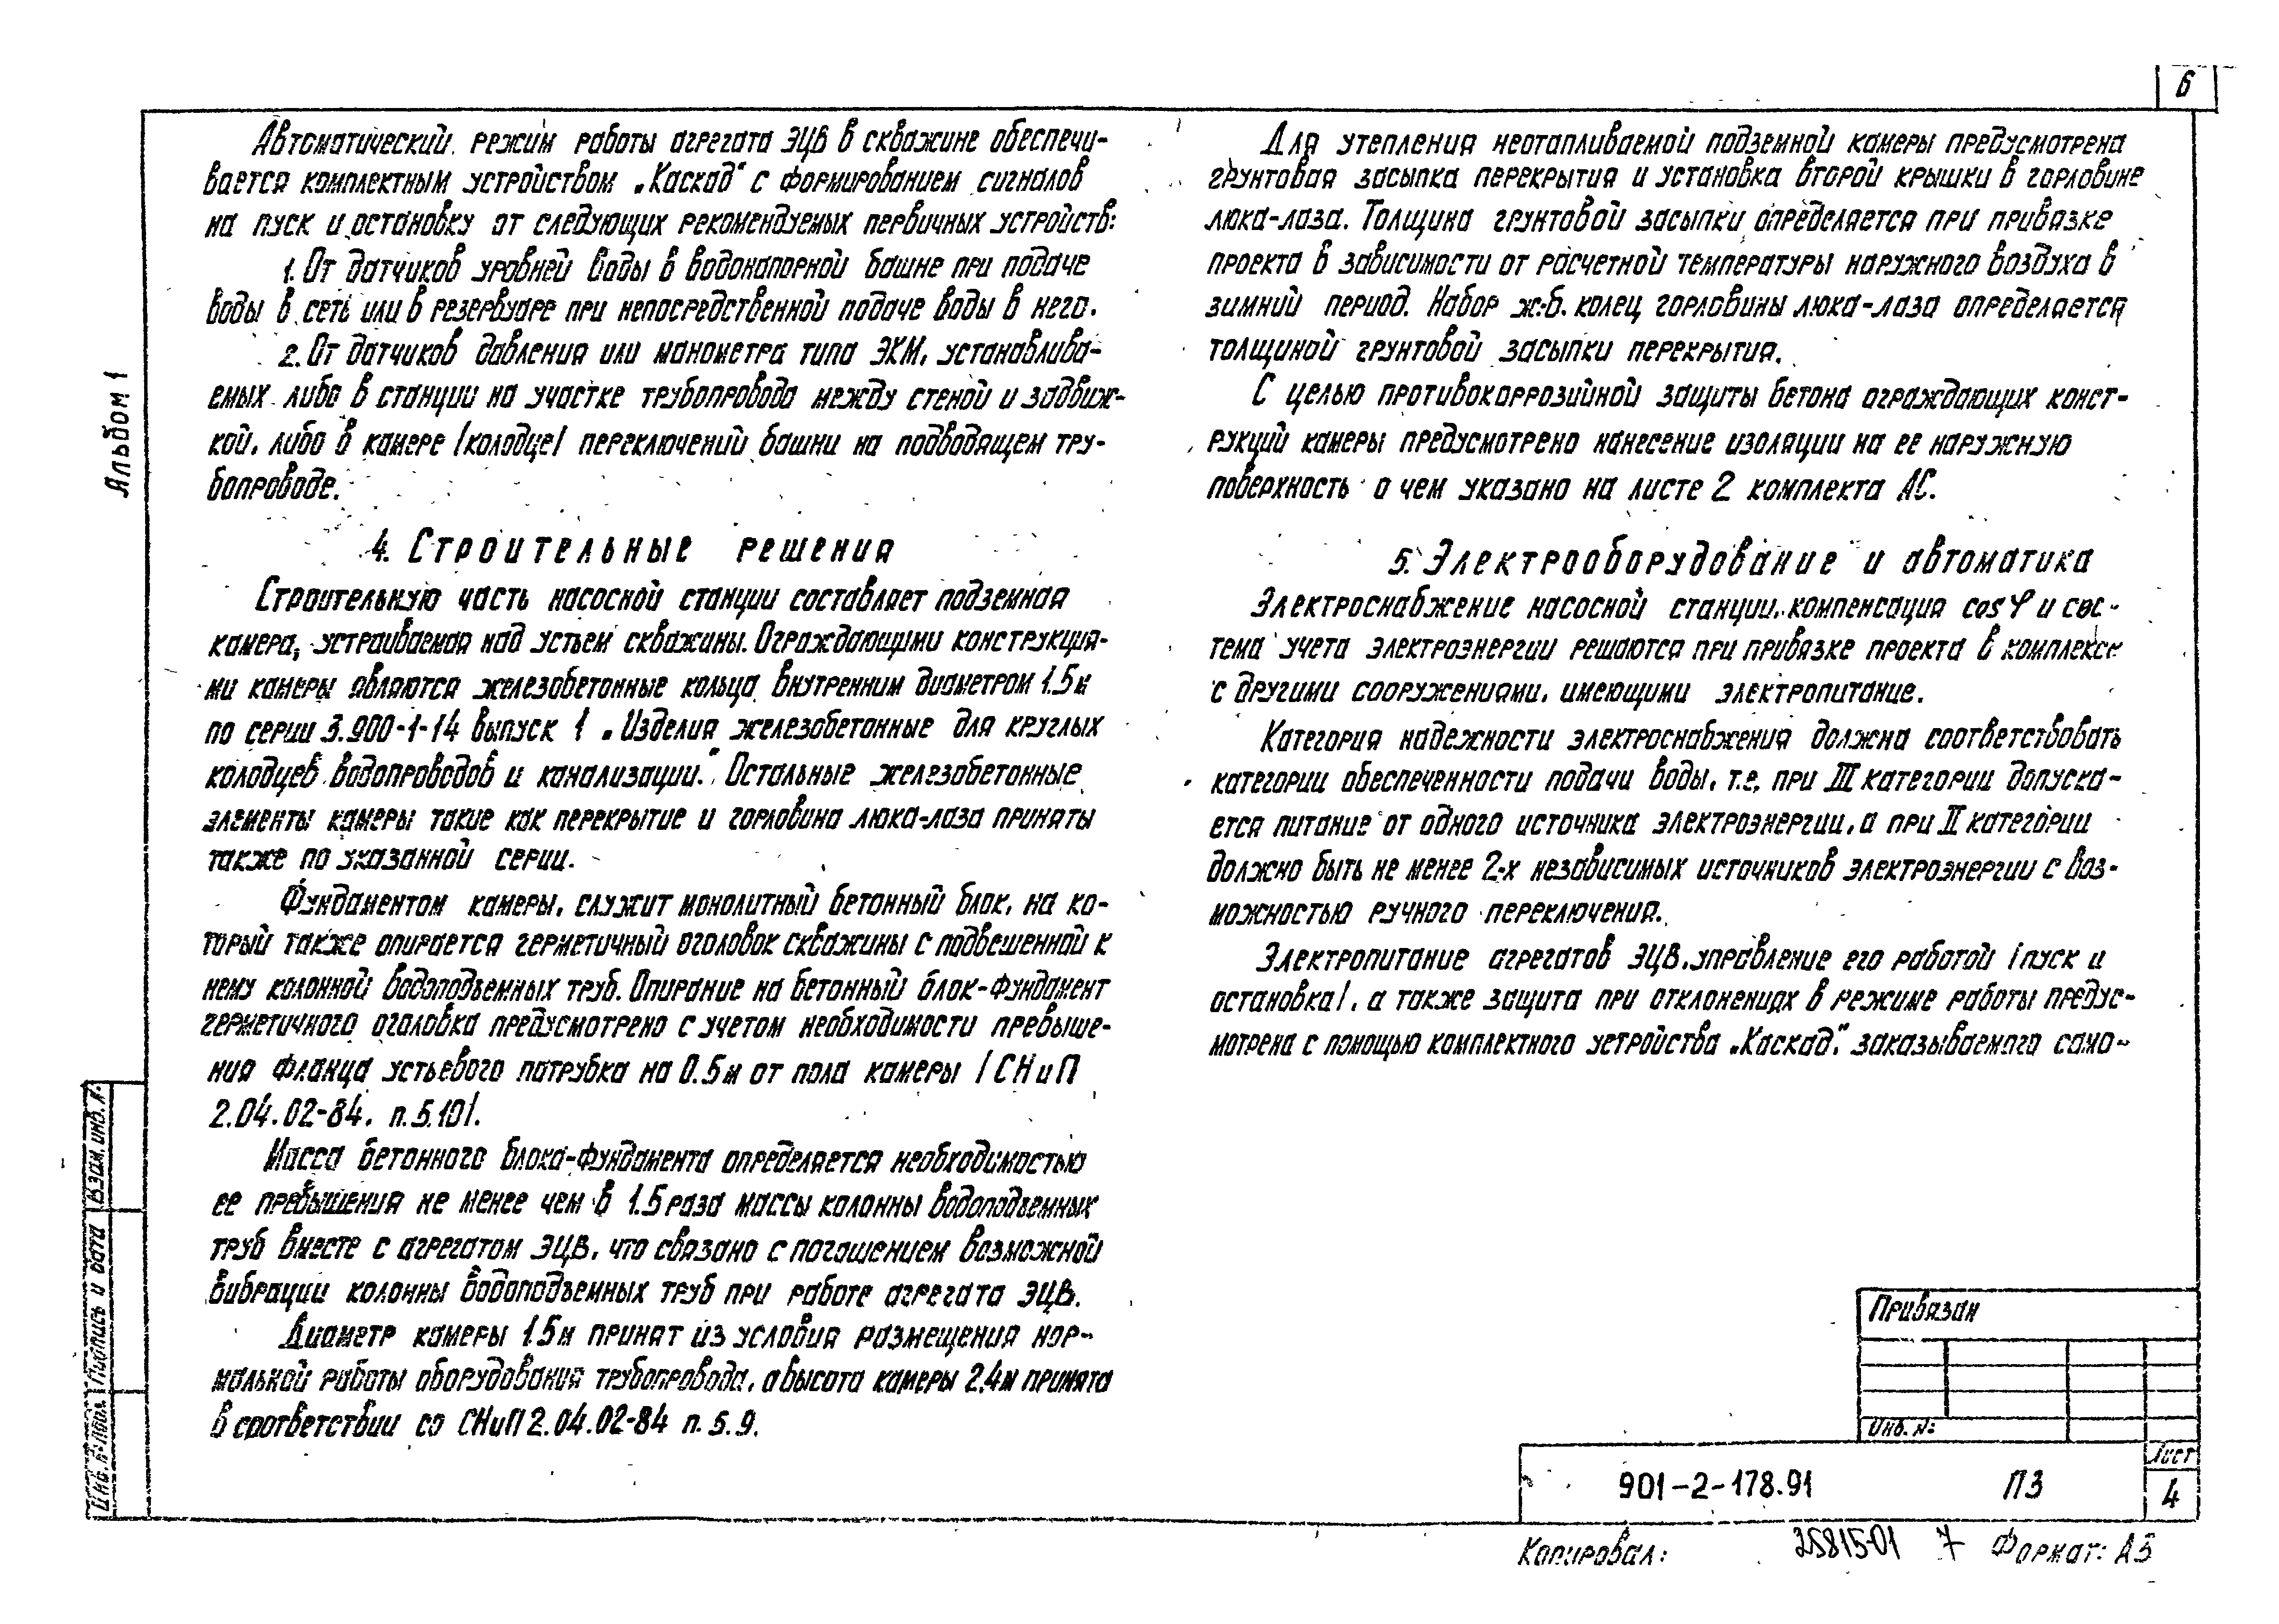 6
Альбом 1
Автоматический режим работы агрегата ЭЦВ в скважине обеспечи-
вается комплектным устройством „Каскад" с формированием сигналов
на пуск и остановку от следующих рекомендуемых первичных устройств:
1. От датчиков уровней воды в водонапорной башне при подаче
воды в сеть или в резервуаре при непосредственной подаче воды в него.
2. От датчиков давления или манометра типа ЭКМ, устанавлива-
емых либо в станции на участке трубопровода между стеной и задвиж-
кой, либо в камере /колодце/ переключений башни на подводящем тру-
бопроводе.
4. Строительные решения
Строительную часть насосной станции составляет подземная
камера, устраиваемая над устьем скважины. Ограждающими конструкция-
ми камеры являются железобетонные кольца внутренним диаметром 1.5м
по серии 3.900-1-14 выпуск 1 „Изделия железобетонные для круглых
колодцев водопроводов и канализации." Остальные железобетонные
элементы камеры такие как перекрытие и горловина люка-лаза приняты
также по указанной серии.
Фундаментом камеры, служит монолитный бетонный блок, на ко-
торый также опирается герметичный оголовок скважины с подвешенной к
нему колонной водоподъемных труб. Опирание на бетонный блок-фундамент
герметичного оголовка предусмотрено с учетом необходимости превыше-
ния фланца устьевого патрубка на 0.5м от пола камеры /СНиП
2.04.02-84, п.5.10/.
Масса бетонного блока-фундамента определяется необходимостью
ее превышения не менее чем в 1.5 раза массы колонны водоподъемных
труб вместе с агрегатом ЭЦВ, что связано с погашением возможной
вибрации колонны водоподъемных труб при работе агрегата ЭЦВ.
Диаметр камеры 1.5м принят из условия размещения нор-
мальной работы оборудования трубопровода, а высота камеры 2.4м принята
в соответствии со СНиП 2.04.02-84 п.5.9.
Для утепления неотапливаемой подземной камеры предусмотрена
грунтовая засыпка перекрытия и установка второй крышки в горловине
люка-лаза. Толщина грунтовой засыпки определяется при привязке
проекта в зависимости от расчетной температуры наружного воздуха в
зимний период. Набор ж.б. колец горловины люка-лаза определяется
толщиной грунтовой засыпки перекрытия.
С целью противокоррозийной защиты бетона ограждающих конст-
рукций камеры предусмотрено нанесение изоляции на ее наружную
поверхность о чем указано на листе 2 комплекта АС.
5. Электрооборудование и автоматика
Электроснабжение насосной станции, компенсация cos φ и сис-
тема учета электроэнергии решаются при привязке проекта в комплексе
с другими сооружениями, имеющими электропитание.
Категория надежности электроснабжения должна соответствовать
категории обеспеченности подачи воды, т.е. при III категории допуска-
ется питание от одного источника электроэнергии, а при II категории
должно быть не менее 2-х независимых источников электроэнергии с воз-
можностью ручного переключения.
Электропитание агрегатов ЭЦВ, управление его работой /пуск и
остановка/, а также защита при отклонениях в режиме работы предус-
мотрена с помощью комплектного устройства „Каскад", заказываемого само-
Инв. № подл. Подпись и дата Взам. инв. №
Привязан
Инв. №:
901-2-178.91 ПЗ
Лист
4
Копировал: 25815-01 7 Формат: А3